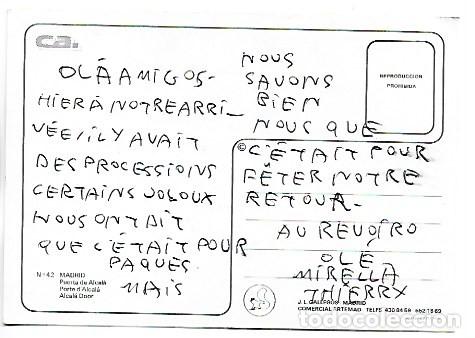 ca.
OLÁ AMIGOS-
HIER À NOTRE ARRI-
VÉE, IL Y AVAIT
DES PROCESSIONS
CERTAINS JOLOUX
NOUS ONT DIT
QUE C'ÉTAIT POUR
PAQUES.
MAIS
NOUS
SAVONS
BIEN
NOUS QUE
C'ÉTAIT POUR
FÊTER NOTRE
RETOUR-
AU REVOIRO
OLÉ
MIRELLA
THIERRY
REPRODUCCION
PROHIBIDA
©
N.º 42 MADRID
Puerta de Alcalá
Porte d'Alcalá
Alcalá Door
J. L. GALLEGOS - MADRID
COMERCIAL ARTEMAD TELFS 430 84 69
todocoleccion